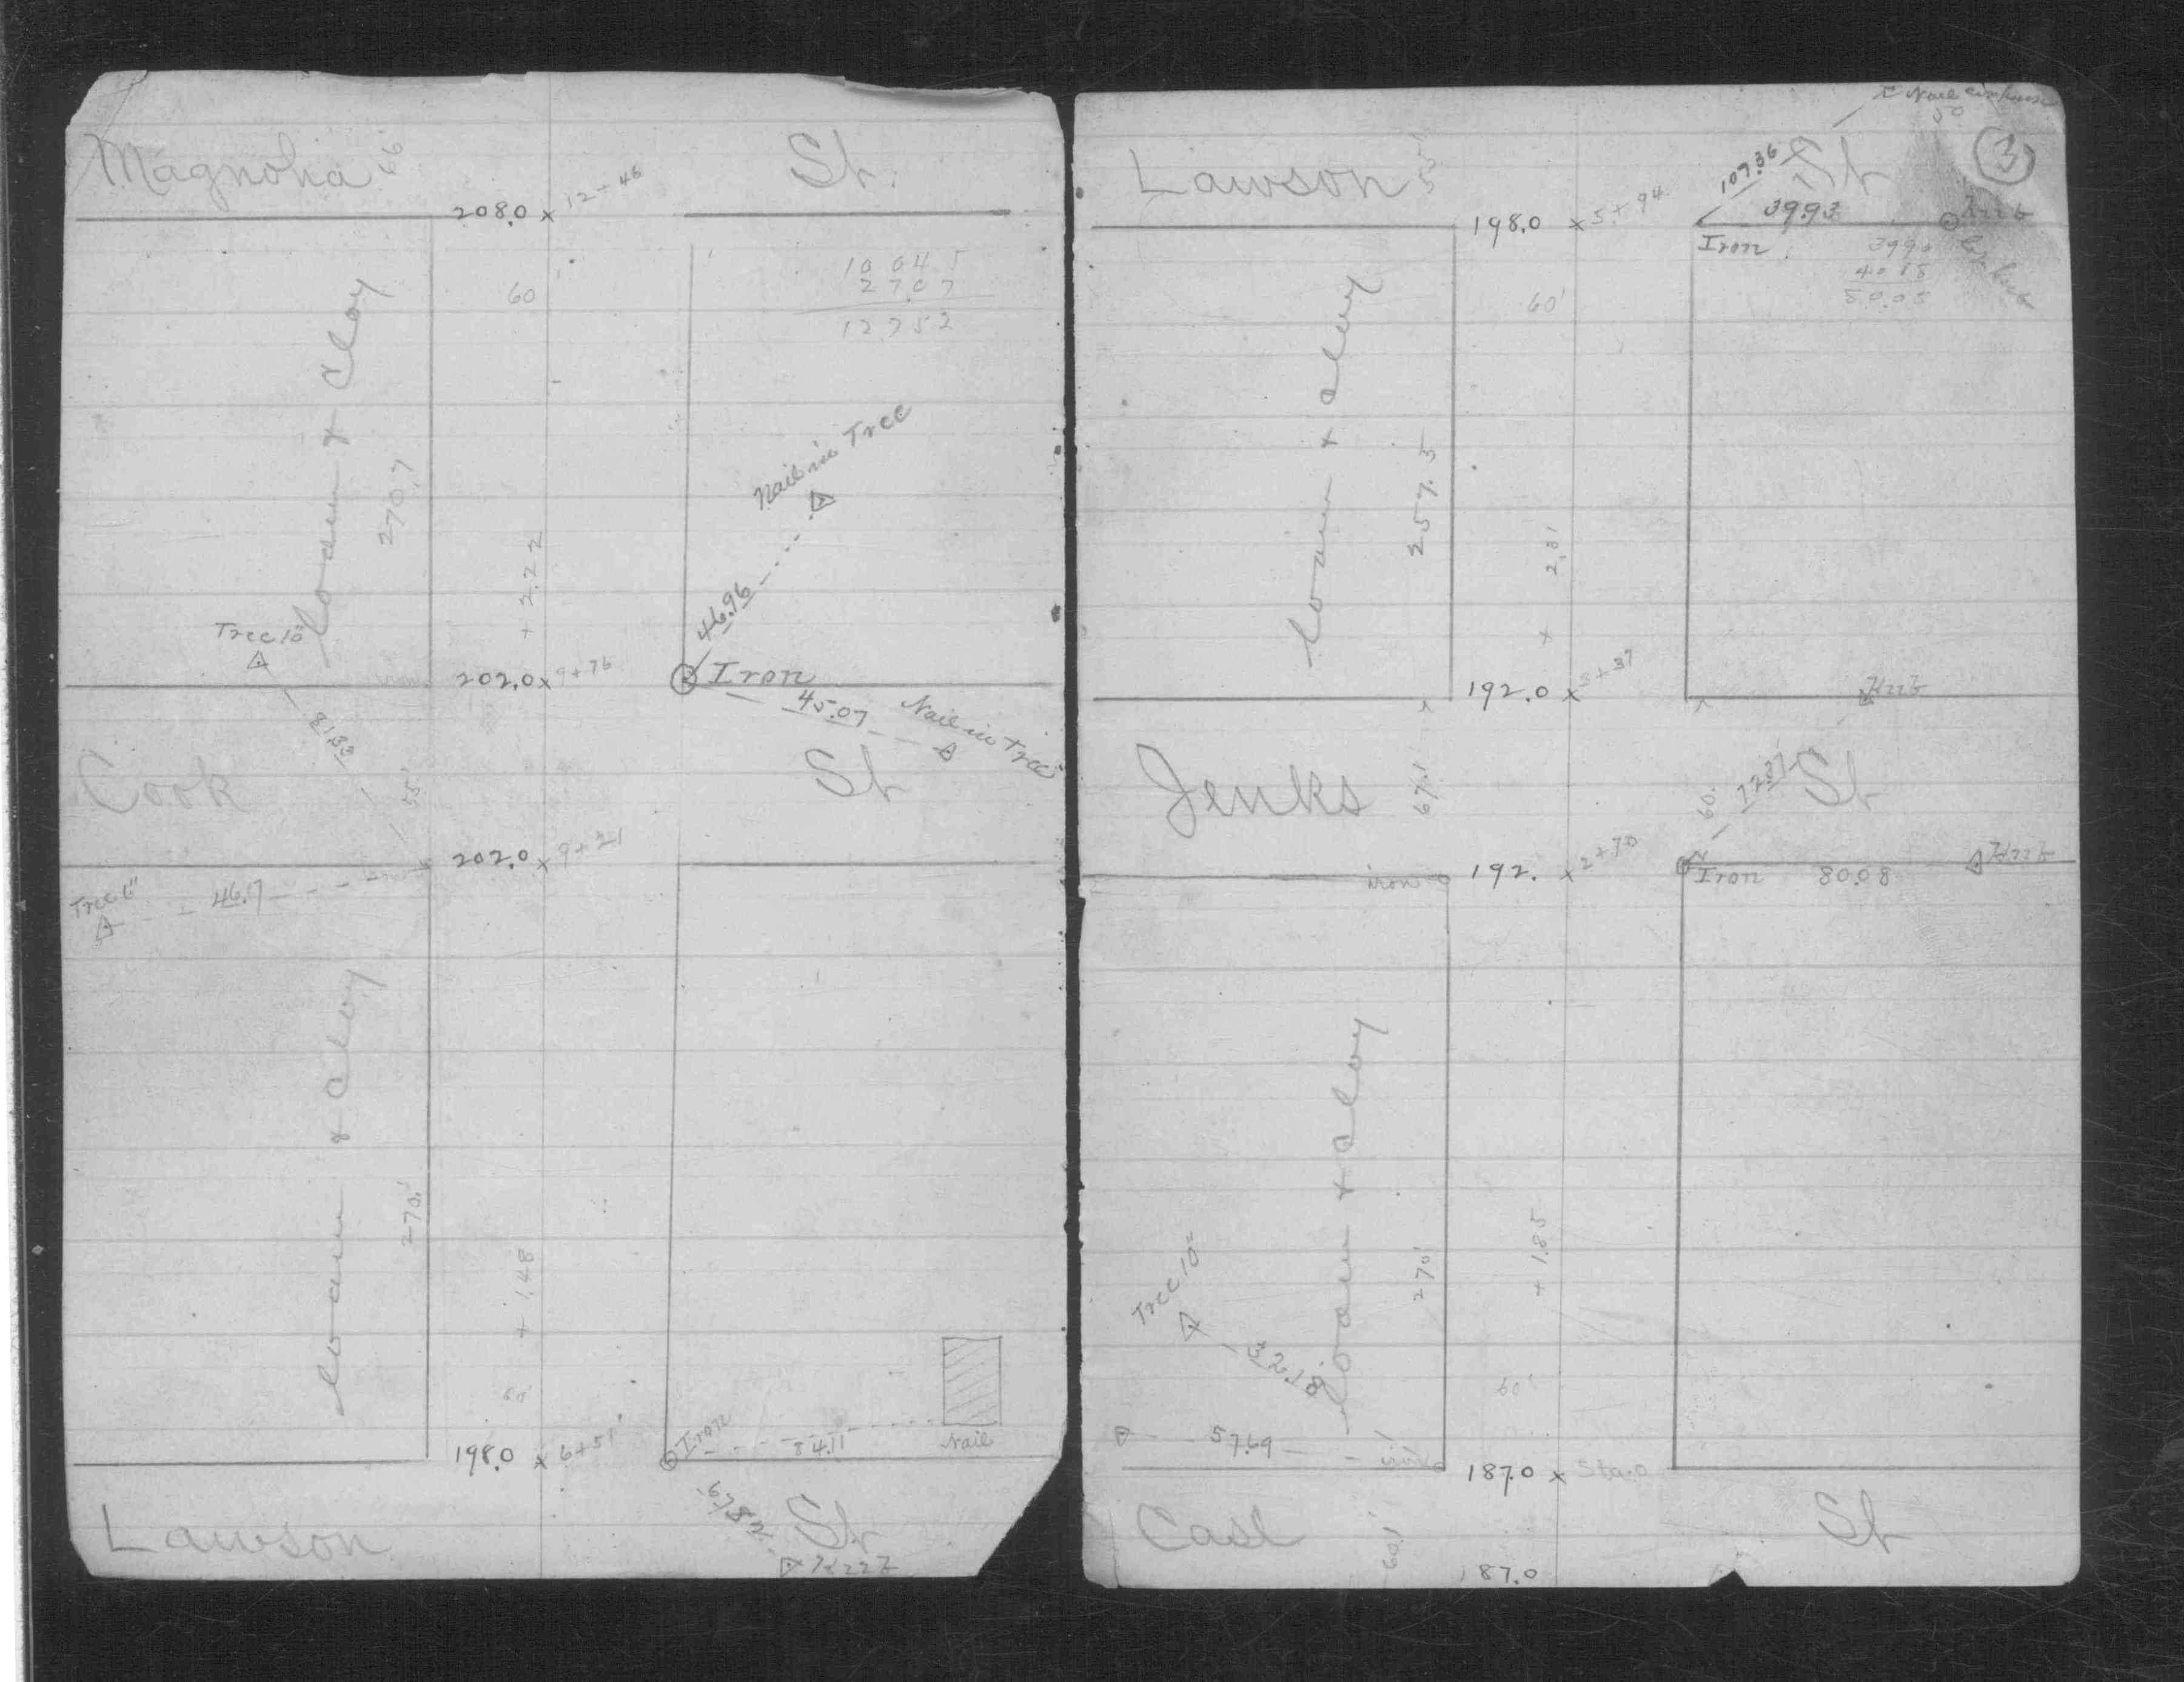 Magnolia 66 St.
208.0 x 12+46
60
10 04 5
27.07
12752
loam & Clay
270.7
+ 2.22
Nail in Tree
46.96
Tree 10"
202.0 x 9+76
Iron
45.07
Nail in Tree
81.33
Cook 55' St
202.0 x 9+21
Tree 6"
46.17
loam & Clay
270.'
+ 1.48
60'
198.0 x 6+51
Iron
84.11
Nail
Lawson St
Nail
50
3
Lawson 55' St
107.36
198.0 x 5+94
39.93
Iron
60'
4018
80.08
loam + Clay
257.5
+ 2.31
192.0 x 3+37
Jenks 67.1' St
60.
72.37
iron
192. x 2+70
Iron 80.08
loam + Clay
270'
+ 1.85
Tree 10"
32.18
60'
57.69
iron
187.0 x Sta. 0
Case 60.1' St
187.0